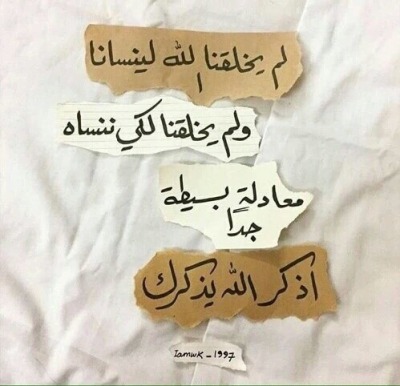 لم يخلقنا الله لينسانا
ولم يخلقنا لكي ننساه
معادلةٍ بسيطة
جداً
أذكر الله يذكرك
Iamwk_1997